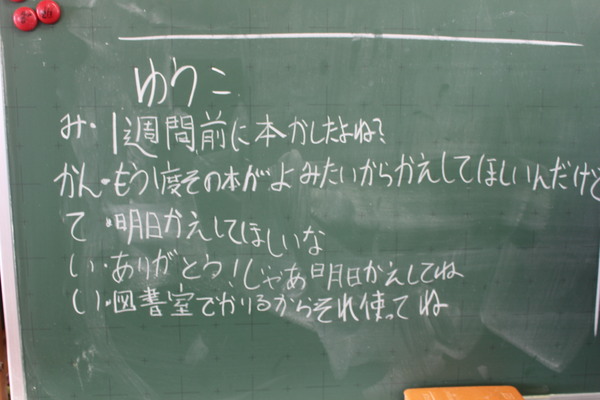 ゆりこ
み・1週間前に本かしたよね?
かん・もう1度その本がよみたいからかえしてほしいんだけど
て・明日かえしてほしいな
い・ありがとう!じゃあ明日かえしてね
い・図書室でかりるからそれ使ってね